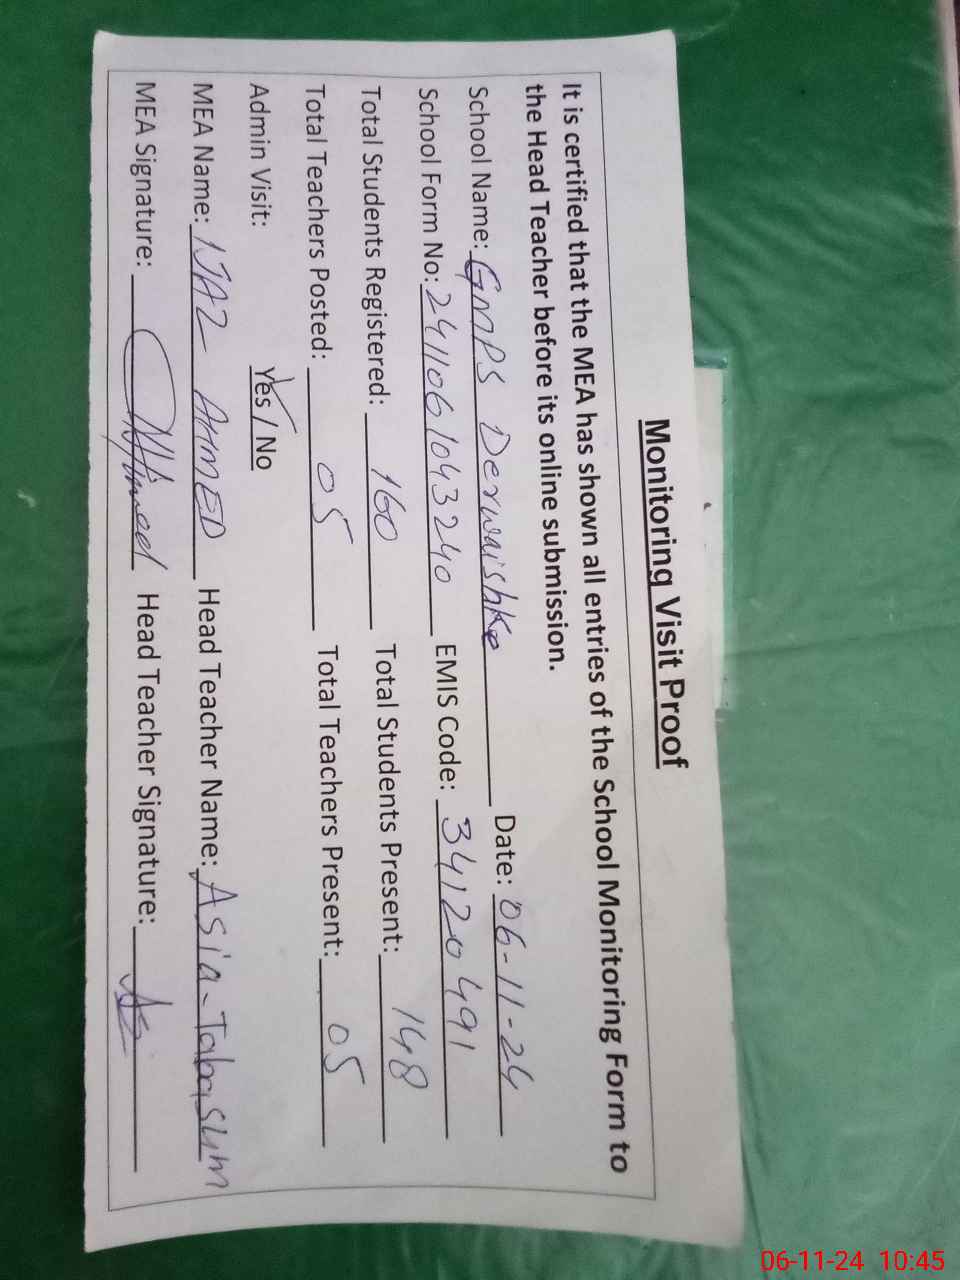 Monitoring Visit Proof
It is certified that the MEA has shown all entries of the School Monitoring Form to
the Head Teacher before its online submission.
School Name: GMPS Derwaishke Date: 06-11-24
School Form No: 2411061043240 EMIS Code: 34120491
Total Students Registered: 160 Total Students Present: 148
Total Teachers Posted: 05 Total Teachers Present: 05
Admin Visit: Yes / No
MEA Name: IJAZ AHMED Head Teacher Name: Asia-Tabasum
MEA Signature: Ahmed Head Teacher Signature:
06-11-24 10:45